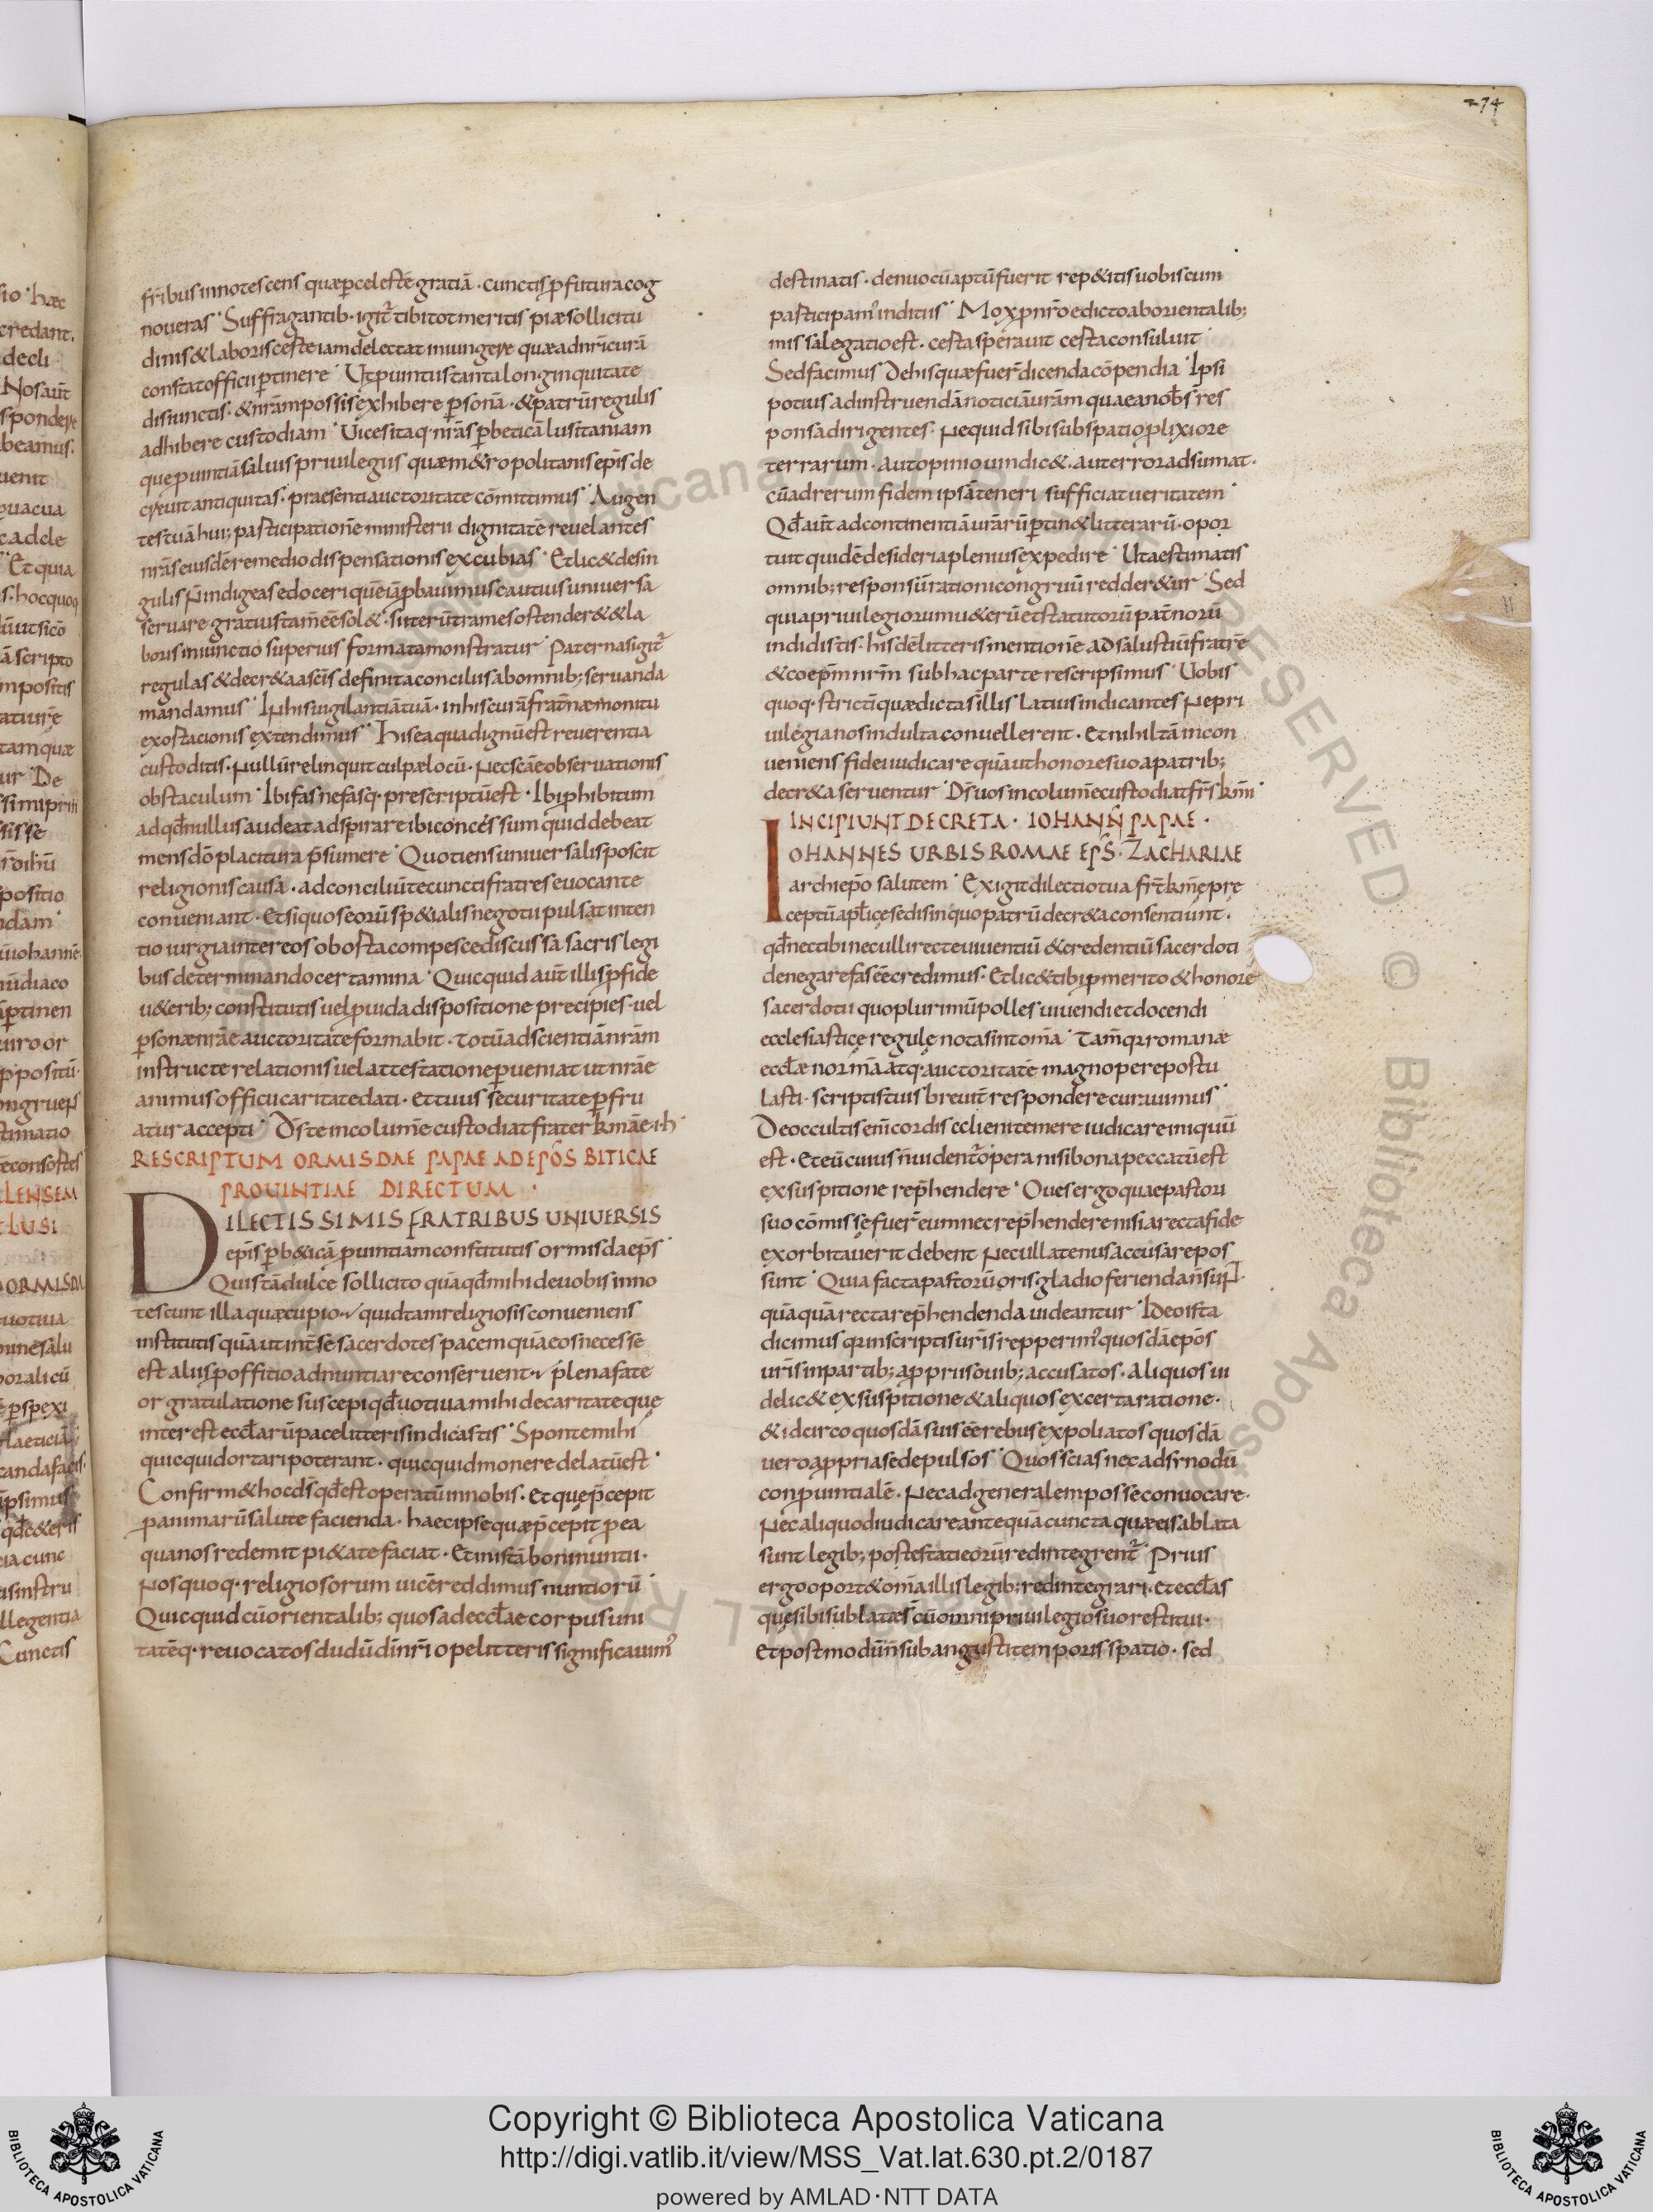 274
fr̄ibus innotescens quæ ꝑ celestē gratiā · cunctis ꝓfutura cog
noveras · Suffragantib · igit̄ tibi tot meritis piæ sollicitu
dinis & laboris ceste iam delectat iniungere quæ ad nr̄i curā
constat officii ꝑtinere · Ut ꝓuintiis tanta longinquitate
disiunctis · & nr̄am possis exhibere ꝑsonā · & patrū regulis
adhibere custodiam · Uices itaq · nr̄as ꝑ beticā lusitaniam
que ꝓuintiā saluis priuilegiis quæ m&ropolitanis ep̄is de
creuit antiquitas · praesenti auctoritate cōmittimus · Augen
tes tuā hui; pasticipationē ministerii dignitatē reuelantes
nr̄as eiusdē remedio dispensationis excubias · Et lic& de sin
gulis n̄ indigeas edoceri quē iā ꝓbauimus cautius uniuersa
seruare gratius tam̄ eē sol& · si iterū trames ostender& & la
boris iniunctio superius format a monstratur · Paternas igit̄
regulas & decr&a a sc̄is definita conciliis ab omnib; seruanda
mandamus · In his uigilantiā tuā · in his curā frat̄næ monitu
exostacionis extendimus · His ea qua dignū est reuerentia
custoditis · Nullū relinquit culpæ locū · Nec sc̄ae obseruationis
obstaculum · Ibi fas nefasq · prescriptū est · Ibi ꝓhibitum
ad qd̄ nullus audeat adspirar& ibi concessum quid debeat
mens dō placitura p̄sumere · Quotiens uniuersalis poscit
religionis causa · ad conciliū te cuncti fratres euocante
conueniant · Et si quos eorū sp&ialis negotii pulsat inten
tio iurgia inter eos obosta compesce discussa sacris legi
bus determinando certamina · Quicquid aut̄ illis ꝓ fide
u&erib; constitutis uel ꝓuida dispositione precipies · uel
ꝑsonæ nr̄ae auctoritate formabit · totū ad scientiā nr̄am
instructe relationis uel attestatione ꝑueniat ut nr̄ae
animus officii caritate dati · et tuus securitate ꝑfru
atur accepti · Ds̄ te incolumē custodiat frater km̄æ · i · h ·
RESCRIPTUM ORMISDAE PAPAE AD EPOS BITICAE
PROUINTIAE DIRECTUM ·
DILECTISSIMIS FRATRIBUS UNIUERSIS
ep̄is ꝑ b&icā ꝓuintiam constitutis ormisda ep̄s
Quis tā dulce sollicito quā qd̄ mihi de uobis inno
tescunt illa quæ cupio quid tam religiosis conueniens
institutis quā ut int̄ se sacerdotes pacem quā eos necesse
est aliis ꝓ offitio adnuntiare conseruent p̄lena fate
or gratulatione suscepi qd̄ uotiua mihi de caritate que
inter est eccl̄arū pace litteris indicastis · Sponte mihi
quicquid ortari poterant · quicquid monere delatū est ·
Confirm& hoc ds̄ qd̄ est operatū in nobis · Et que p̄cepit
ꝓ animarū salute facienda · haec ipse quæ p̄cepit ꝓ ea
qua nos redemit pi&ate faciat · Et in istā boni nuntii ·
Nos quoq · religiosorum uicē reddimus nuntiorū ·
Quicquid cū orientalib; quos ad eccl̄ae corpus uni
tatēq · reuocatos dudū dīnr̄i ope litteris significauim᾽
destinatis · denuo cū aptū fuerit rep&itis uobiscum
pasticipam᾽ inditiis · Mox ꝓ nr̄o edicto ab orientalib;
missa legatio est · cesta sperauit cesta consuluit
Sed facimus De his quæ fuer̄ dicenda cōpendia · Ipsi
potius ad instruendā noticiā ur̄am quae a nobs̄ res
ponsa dirigentes · Ne quid sibi sub spatio ꝓlixiore
terrarum · aut opinio uindic& · aut error adsumat ·
cū ad rerum fidem ipsā teneri sufficiat ueritatem ·
Qd̄ aut̄ ad continentiā urārū ꝑtin& litterarū · opor
tuit quidē desideria plenius expedire · Ut aestimatis
omnib; responsū rationi congruū redder&ur · Sed
quia priuilegiorum u&erū et statutorū pat̄norū
indidistis · his dē litteris mentionē ad salustiū fratrē
& coep̄m nr̄m sub hac parte rescripsimus · Uobis
quoq · strictī quæ dicta s̄ illis latius indicantes Ne pri
uilegia nos indulta conuellerent · Et nihil tā incon
ueniens fidei iudicare quā ut honore suo a patrib;
decr&a seruentur · Ds̄ uos incolumē custodiat fr̄s km̄i ·
INCIPIUNT DECRETA · IOHANN PAPAE ·
IOHANNES URBIS ROMAE EPS̄ · ZACHARIAE
archiep̄o salutem · Exigit dilectio tua fr̄t km̄ę pre
ceptū apl̄icę sedis in quo patrū decr&a consentiunt ·
qd̄ nec tibi nec ulli recte uiuentiū & credentiū sacerdoti
denegare fas eē credimus · Et lic& tibi ꝓ merito & honore
sacerdotii quo plurimū polles uiuendi et docendi
ecclesiasticę regulę nota sint om̄a · Tam̄ qr romanæ
eccl̄æ normā atq · auctoritatē magnopere postu
lasti · scriptis tuis breuit̄ respondere curauimus ·
De occultis eni cordis cclieni temere iudicare iniquū
est · Et eū cuius n̄ uident̄ opera nisi bona peccatū est
ex suspitione rep̄hendere · Oues ergo quae pastori
suo cōmisse fuer̄ eum nec rep̄hendere nisi a recta fide
exorbitauerit debent Nec ullatenus accusare pos
sunt · Quia facta pastorū oris gladio ferienda n̄ sun̄t ·
quā quā recta rep̄hendenda uideantur · Ideo ista
dicimus qr in scriptis ur̄is repperim᾽ quosdā ep̄os
ur̄is in partib; a ꝓpriis ouib; accusatos · aliquos ui
delic& ex suspitione & aliquos ex certa ratione ·
& idcirco quosdā suis eē rebus expoliatos quosdā
uero a ꝓpria sede pulsos · Quos scias nec ad sr̄nodū
conꝓuintialē · Nec ad generalem posse conuocare ·
Nec aliquod iudicare antequā cuncta quæ eis ablata
sunt legib; potestati eorū redintegrent̄ · Prius
ergo oport& om̄a illis legib; redintegrari · et eccl̄as
quę sibi sublatæ s̄ cū omni priuilegio suo restitui ·
Et postmodū n̄ sub angusti temporis spatio · sed
Copyright © Biblioteca Apostolica Vaticana
http://digi.vatlib.it/view/MSS_Vat.lat.630.pt.2/0187
powered by AMLAD·NTT DATA